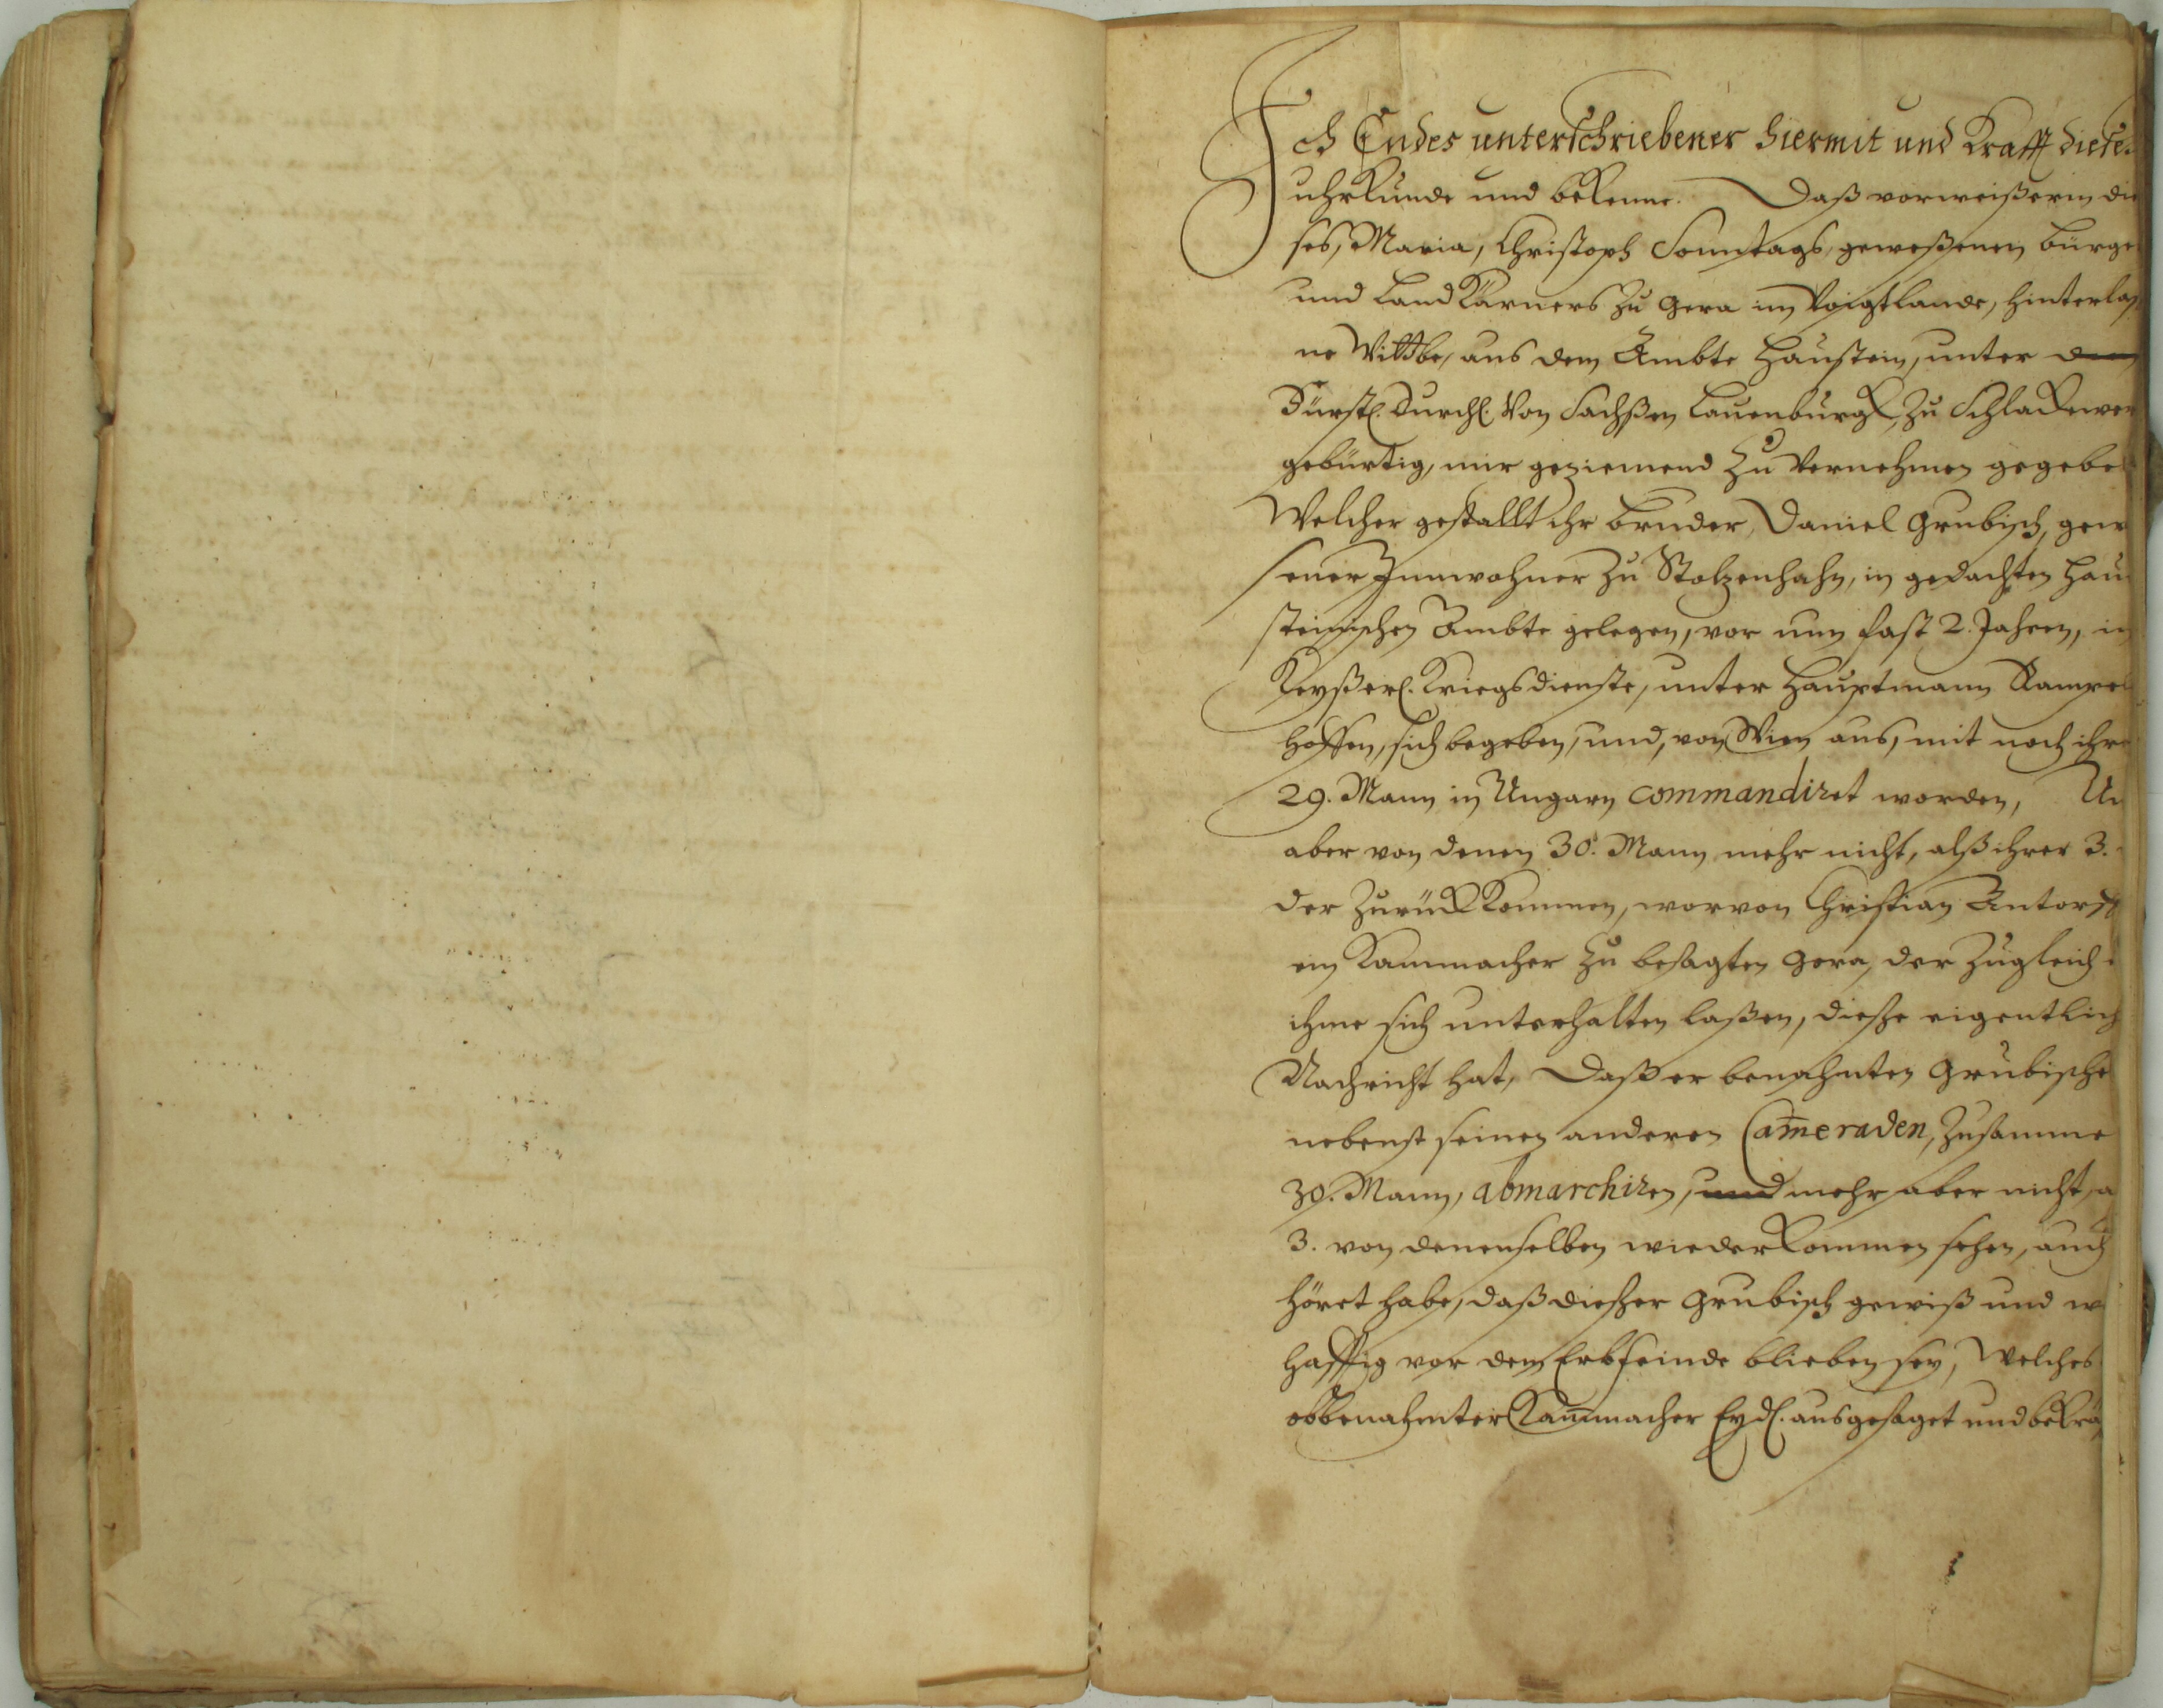 Ich Endes unterschriebener hiermit und Krafft diese
uhrkunde und bekenne. Daß vorweißerin die
ses, Maria, Christoph Sonntags, geweßenen bürge
und Land Kärners zu Gera im Voigtlande, hinterlaß
ne Wittbe, aus dem Ambte Haustein, unter
Fürstl. Durchl. Von Sachßen Lauenburgk, zu Schlackewer
gebürtig, mir geziemend zu vernehmen gegeben
Welcher gestallt ihr bruder, Daniel Grubisch, gew
sener Innwohner zu Stolzenhahn, in gedachten Hau
steinischen Ambte gelegen, vor nun fast 2. Jahren, in
Keyßerl. Kriegsdienste, unter Hauptmann
hoffen, sich begeben, und, von Wien aus, mit noch ihre
29. Mann in Ungarn commandiret worden, Un
aber von denen 30. Mann mehr nicht, alß ihrer 3.
der zurück kommen, worvon Christian
ein Kammacher zu besagten Gera, der zugleich
ihme sich unterhalten laßen, dieße eigentlich
Nachricht hat, Daß er benahmten Grubische
nebenst seinen anderen Cam̅eraden, zusamme
30. Mann, abmarchiren, und mehr aber nicht, a
3. von denenselben wieder kommen sehen, auch
höret habe, daß dießer Grubisch gewiß und w
hafftig vor dem Erbfeinde blieben sey, Welches
obbenahmter Kam̅macher Eydl. ausgesaget und bekrä